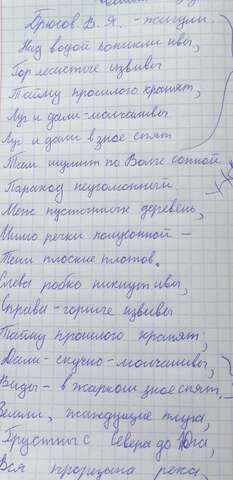 Брюсов В. Я. - Жигули.
Над водой поникли ивы,
Гор лесистые извивы
Тайну прошлого хранят,
Луг и дали - молчаливы
Луг и дали в зное спят
Там шумит по Волге сонной
Пароход неугомонный
Меж пустынных деревень,
Мимо речки полусонной —
Тени плоские плотов.
Слева робко никнут ивы,
Справа - горные извивы
Тайну прошлого хранят,
Дали - скучно - молчаливы,
Виды - в жарком зное спят.
Земли, жаждущие плуга,
Грустны с Севера до Юга,
Вся прорезана река,